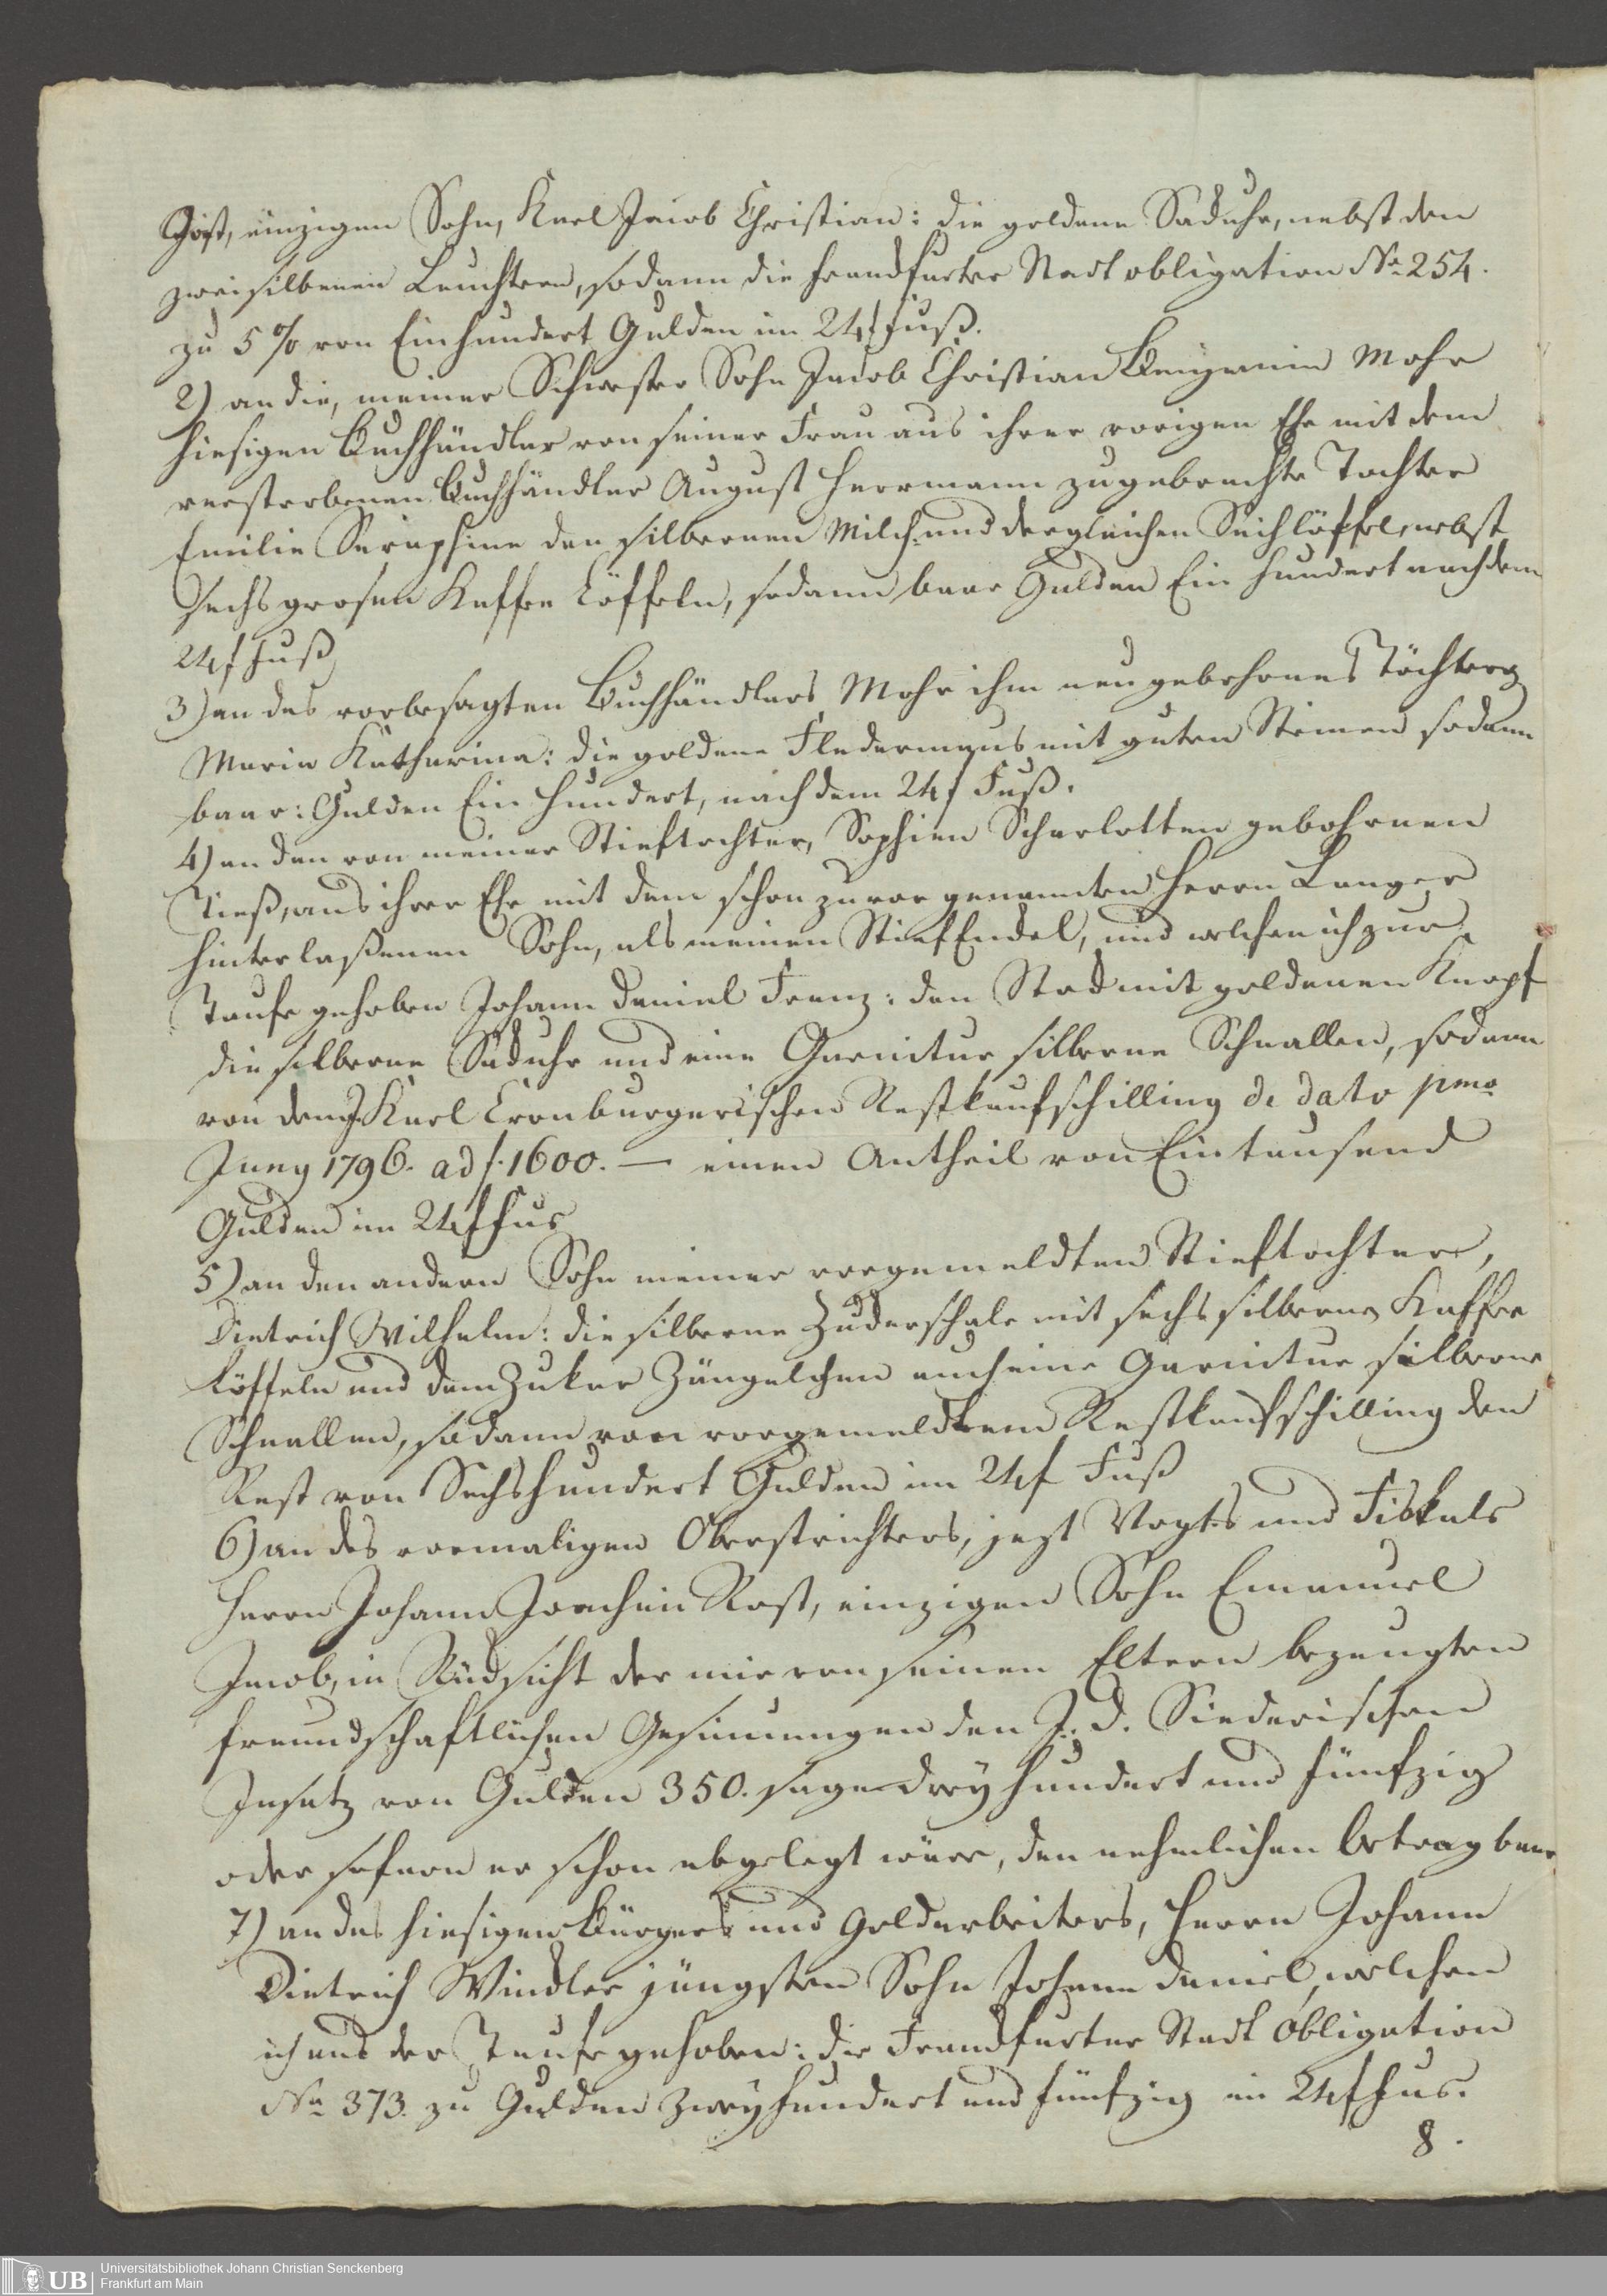 Jost, einzigen Sohn, Karl Jacob Christian: die goldene Sackuhr, nebst den
zwei silbernen Leuchtern, sodann die Franckfurter Stadt obligation No 254.
zu 5% von Einhundert Gulden im 24 f Fuß.
2) an die, meiner Schwester Sohn Jacob Christian Benjamin Mohr
hiesigen Buchhändler von seiner Frau aus ihrer vorigen Ehe mit dem
verstorbenen Buchhändler August Herrmann zugebrachte Tochter
Emilie Seraphine den silbernen Milch- und dergleichen Seihlöffel, nebst
sechs grosen Kaffee Löffeln, sodann baar Gulden Ein hundert nach dem
24 f Fuß
3) an des vorbesagten Buchhändlers Mohr ihm neu gebohrnes Töchterg
Maria Katharina: die goldene Fledermaus mit guten Steinen sodann
baar: Gulden Ein Hundert, nach dem 24 f Fuß.
4) an den von meiner Stieftochter, Sophien Scharlotten gebohrnen
Tieß, aus ihrer Ehe mit dem schon zuvor genannten Herrn Langer
hinterlaßenen Sohn, als meinen Stief Enckel, und welchen ich zur
Taufe gehoben Johann Daniel Franz: den Stock mit goldenen Knopf
die silberne Sackuhr und eine Garnitur silberne Schnallen, sodann
von dem J. Karl Cronburgerischen Restkaufschilling de dato pmo
Juny 1796. ad f. 1600. — einen Antheil von Eintausend
Gulden im 24 f Fus
5) an den andern Sohn meiner vorgemeldten Stieftochter,
Dietrich Wilhelm: die silberne Zuckerschale mit sechs silberne Kaffee
Löffeln und dem Zuker Zängelchen auch eine Garnitur silberne
Schnallen, sodann von vorgemeldtem Restkaufschilling den
Rest von Sechshundert Gulden im 24 f Fuß
6) an des vormaligen Oberstrichters, jezt Vogts und Fiskals
Herrn Johann Joachim Rost, einzigen Sohn Emanuel
Jacob, in Rücksicht der mir von seinen Eltern bezeugten
freundschaftlichen Gesinnungen den J. D. Siederischen
Insatz von Gulden 350. sage drey hundert und fünfzig
oder sofern er schon abgelegt wäre, den nehmlichen Betrag baar
7) an des hiesigen Bürgers und Goldarbeiters, Herrn Johann
Dietrich Windler jüngsten Sohn Johann Daniel, welchen
ich aus der Taufe gehoben: die Franckfurter Stadt Obligation
No 373. zu Gulden Zweyhundert und fünfzig im 24 f Fus.
8.
Universitätsbibliothek Johann Christian Senckenberg
Frankfurt am Main
UB